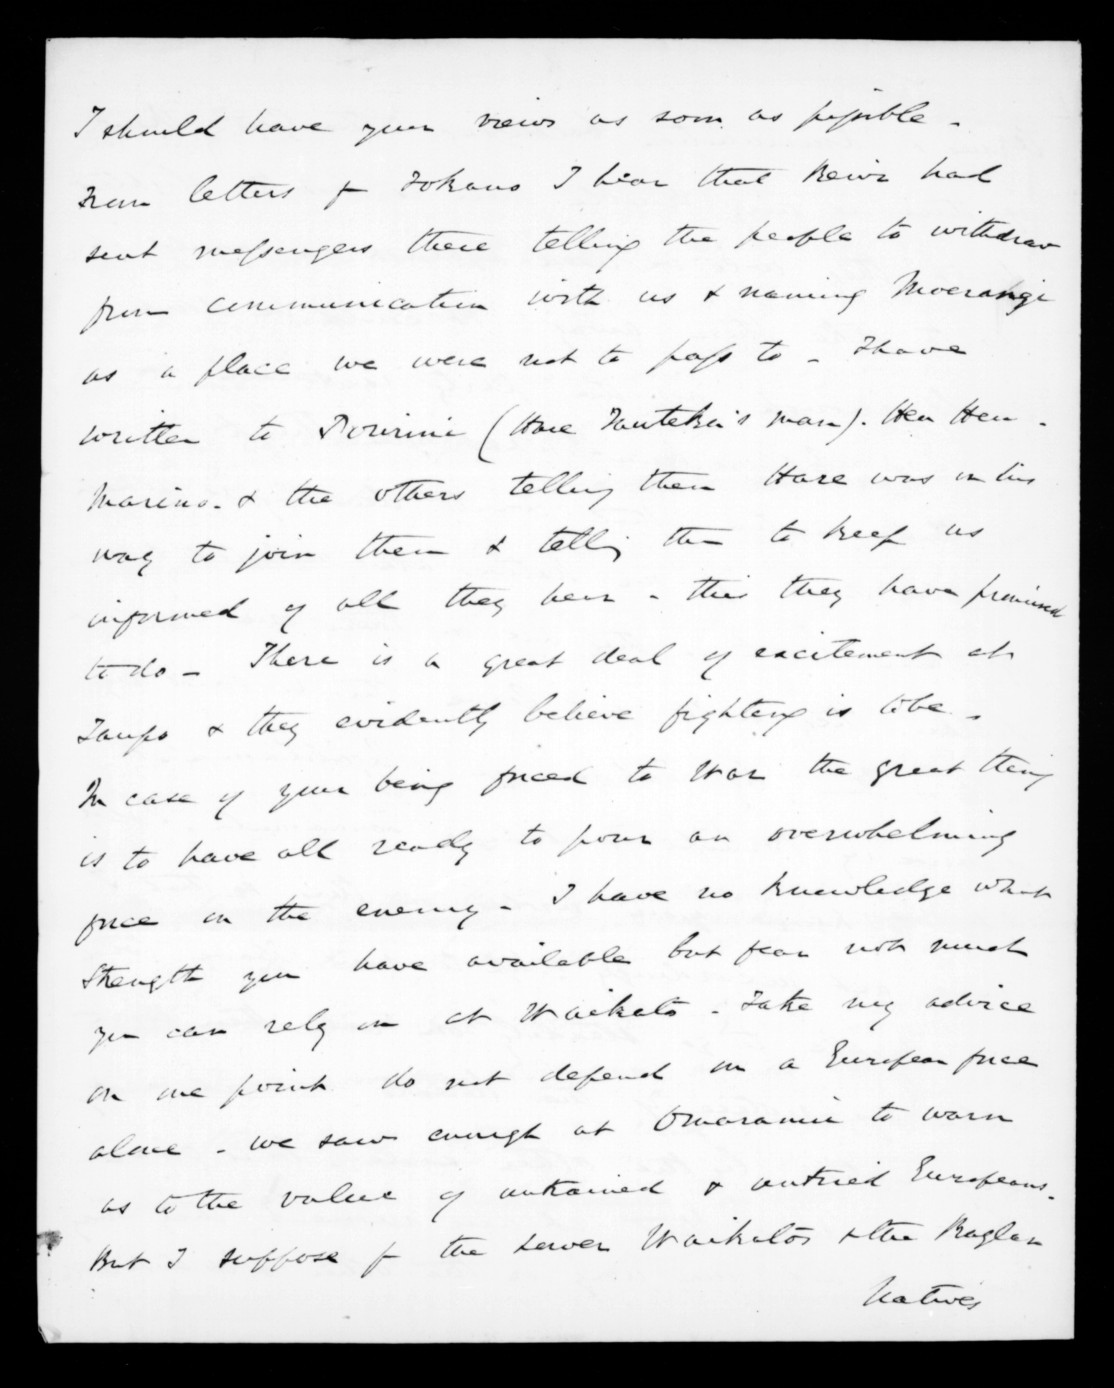 I should have your views as soon as possible -
From letters fr Tokano I hear that Rewi had
sent messengers there telling the people to withdraw
from communication with us & naming Moerangi
as a place we were not to pass to - I have
written to (Hare Tauteka's man). Heu Heu -
Marino - & the others telling them Hare was on his
way to join them & tellig them to keep us
informed of all they hear - this they have promised
to do - There is a great deal of excitement at
Taupo & they evidently believe fighting is to be -
In case of your being forced to War the great thing
is to have all ready to pour an overwhelming
force on the enemy - I have no knowledge what
strength you have available but fear not much
you can rely on at Waikato - Take my advice
on one point do not depend on a European force
alone - we saw enough at Omaramui to warn
as to the value of untrained & untried Europeans -
But I suppose fr the Lower Waikatos & the Raglan
Natives